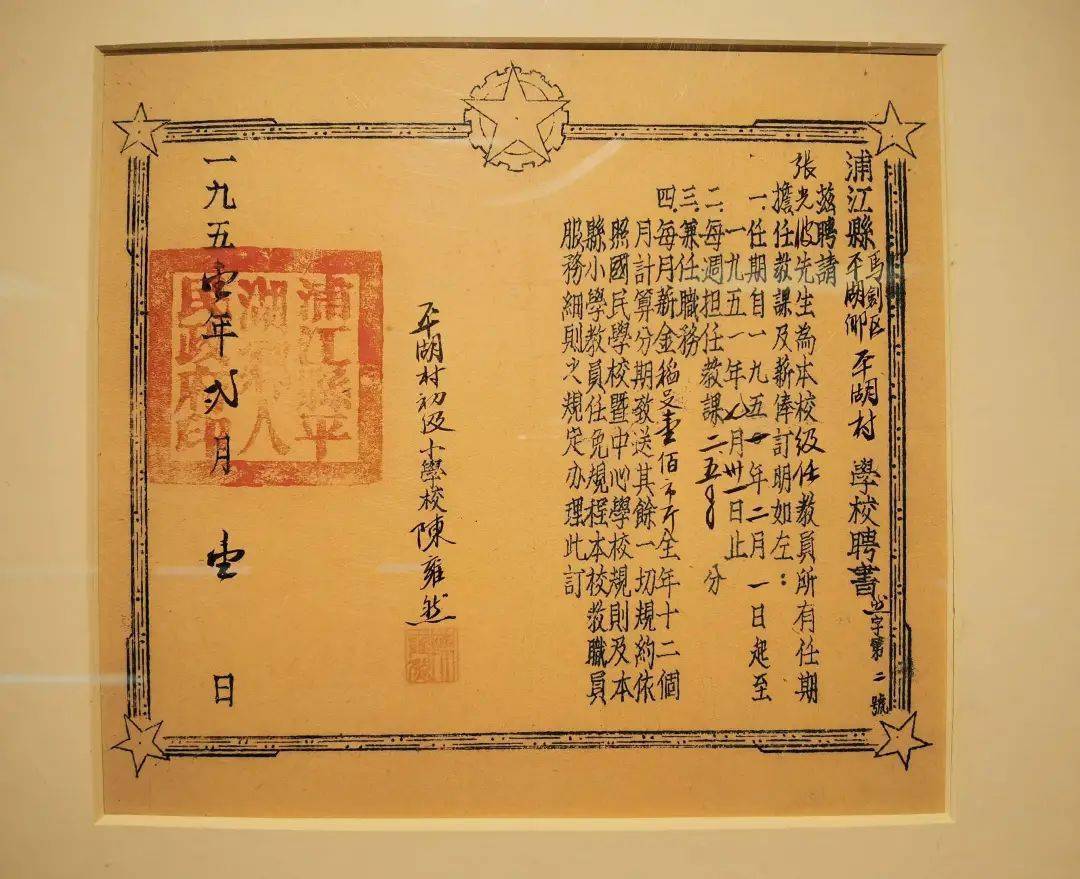 浦江縣馬劍區平湖鄉平湖村 學校聘書 字第二號
茲聘請
張光波先生為本校級任教員所有任期
擔任教課及薪俸訂明如左：
一.任期自一九五一年二月一日起至
一九五一年八月卅一日止
二.每週担任教課 分
三.兼任職務
四.每月薪金稻谷壹佰市斤全年十二個
月計算分期致送其餘一切規約依
照國民學校暨中心學校規則及本
縣小學教員任免規程本校教職員
服務細則之規定办理此訂
平湖村初级小學校 陳雍然
一九五壹年貳月壹日
浦江縣平
湖鄉人
民政府印